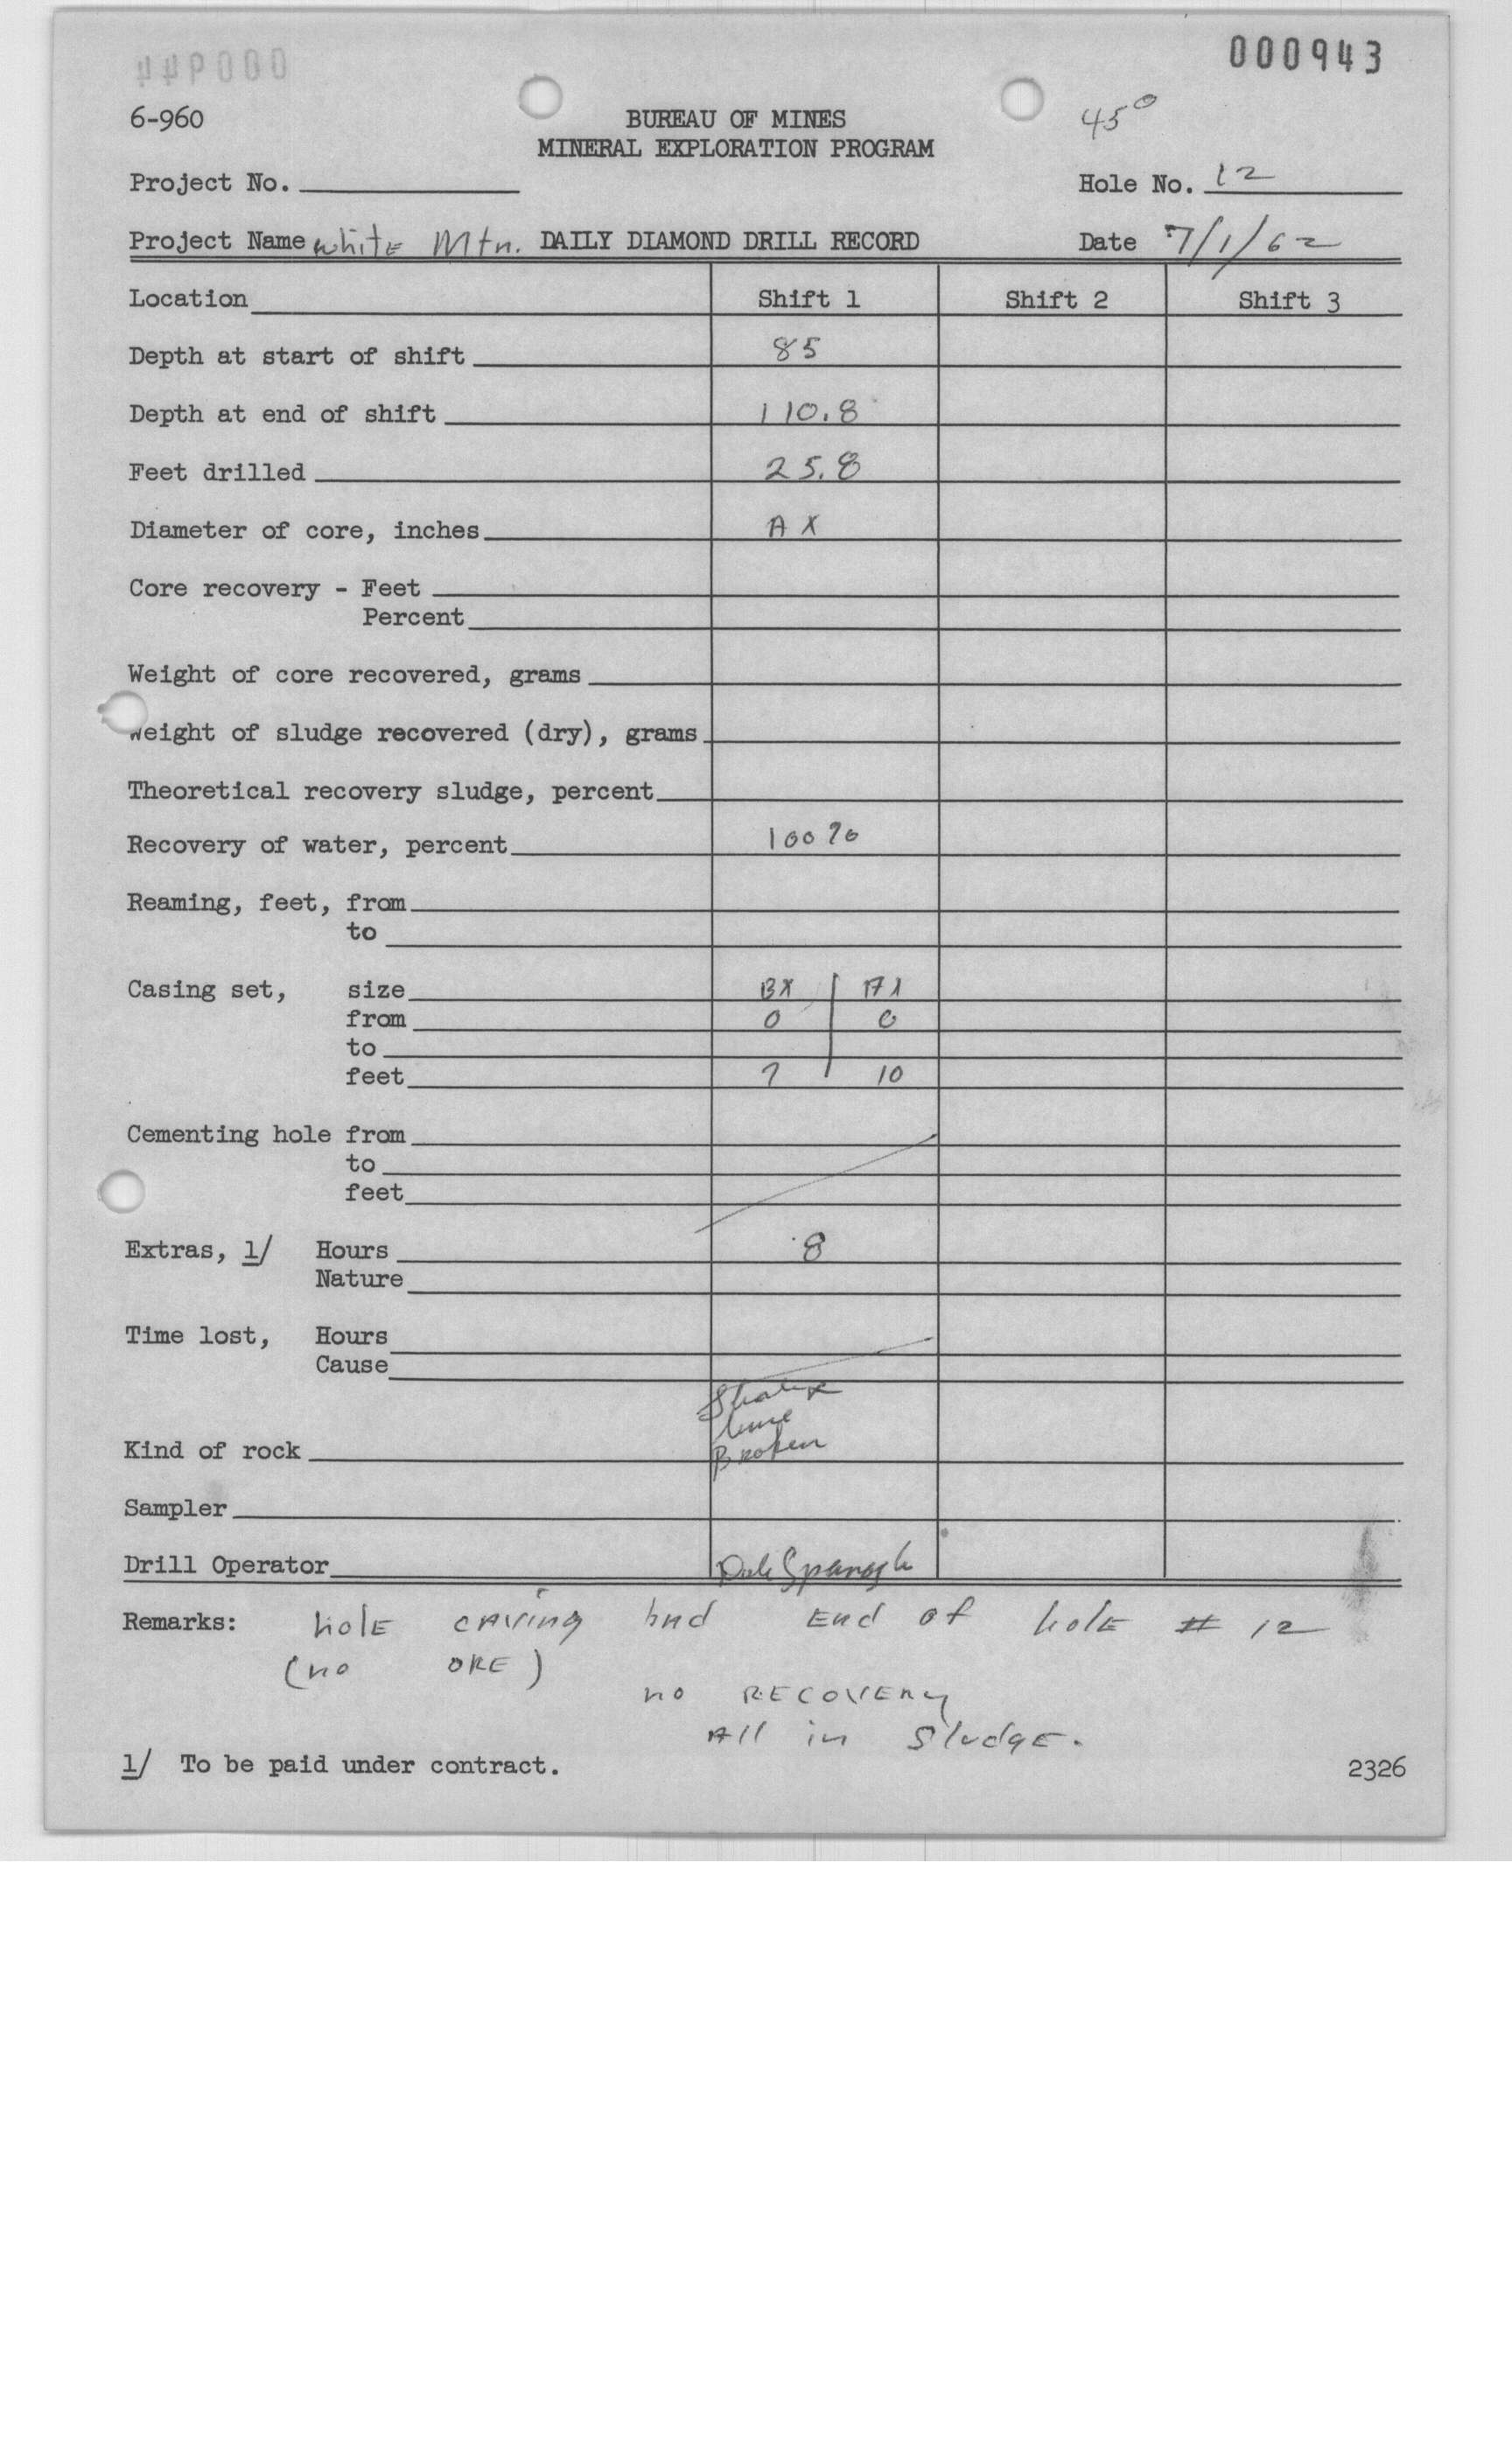 000943
6-960
BUREAU OF MINES
45°
MINERAL EXPLORATION PROGRAM
Project No.
Hole No. 12
Project Name White Mtn. DAILY DIAMOND DRILL RECORD Date 7/1/62
Location Shift 1 Shift 2 Shift 3
Depth at start of shift 85
Depth at end of shift 110.8
Feet drilled 25.8
Diameter of core, inches AX
Core recovery - Feet
Percent
Weight of core recovered, grams
Weight of sludge recovered (dry), grams
Theoretical recovery sludge, percent
Recovery of water, percent 100%
Reaming, feet, from
to
Casing set, size BX AX
from 0 0
to
feet 7 10
Cementing hole from
to
feet
Extras, 1/ Hours 8
Nature
Time lost, Hours
Cause
lime
Kind of rock Broken
Sampler
Drill Operator Dale
Remarks: hole caving End of hole # 12
(no ORE)
no RECOVERy
All in SludgE.
1/ To be paid under contract.
2326